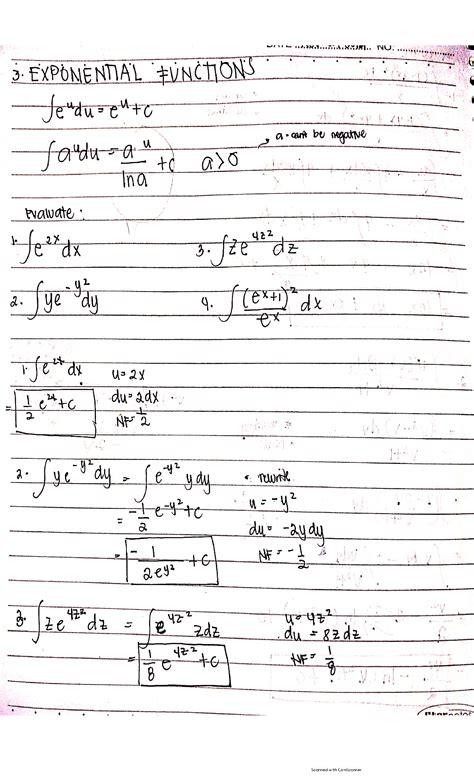 DATE NO.
3. EXPONENTIAL FUNCTIONS
∫e^u du = e^u + c
∫a^u du = a^u/ln a + c a>0 → a - can't be negative
Evaluate:
1. ∫e^2x dx 3. ∫ze^4z² dz
2. ∫ye^-y² dy 4. ∫(e^x+1)^2/e^x dx
1. ∫e^2x dx u = 2x
= 1/2 e^2x + c du = 2dx
NF = 1/2
2. ∫ye^-y² dy = ∫e^-y² ydy • rewrite
= -1/2 e^-y² + c u = -y²
du = -2ydy
= -1/2e^y² + c NF = -1/2
3. ∫ze^4z² dz = ∫e^4z² zdz u = 4z²
du = 8zdz
= 1/8 e^4z² + c NF = 1/8
Scanned with CamScanner